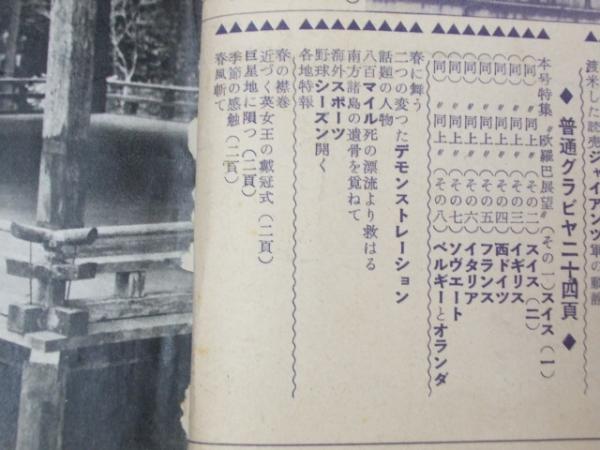 渡米した読売ジャイアンツ軍の動静
◆ 普通グラビヤ二十四頁 ◆
本号特集〝欧羅巴展望〟(その一)スイス(一)
(同)〝同上〟(その二)スイス(二)
(同)〝同上〟(その三)イギリス
(同)〝同上〟(その四)西ドイツ
(同)〝同上〟(その五)フランス
(同)〝同上〟(その六)イタリア
(同)〝同上〟(その七)ソヴエート
(同)〝同上〟(その八)ベルギーとオランダ
▲春に舞う
▲二つの変つたデモンストレーション
▲話題の人物
▲八百マイル死の漂流より救はる
▲南方諸島の遺骨を覓ねて
▲海外スポーツ
▲野球シーズン開く
▲各地特報
▲春の襟巻
▲近づく英女王の戴冠式(二頁)
▲巨星地に隕つ(二頁)
▲季節の感触(二頁)
▲春風斬て